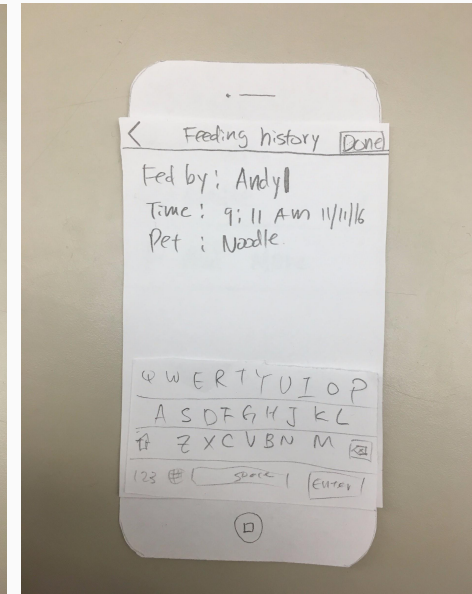 < Feeding history Done
Fed by: Andy
Time: 9:11 Am 11/11/16
Pet: Noodle
Q W E R T Y U I O P
A S D F G H J K L
Z X C V B N M
123 space Enter